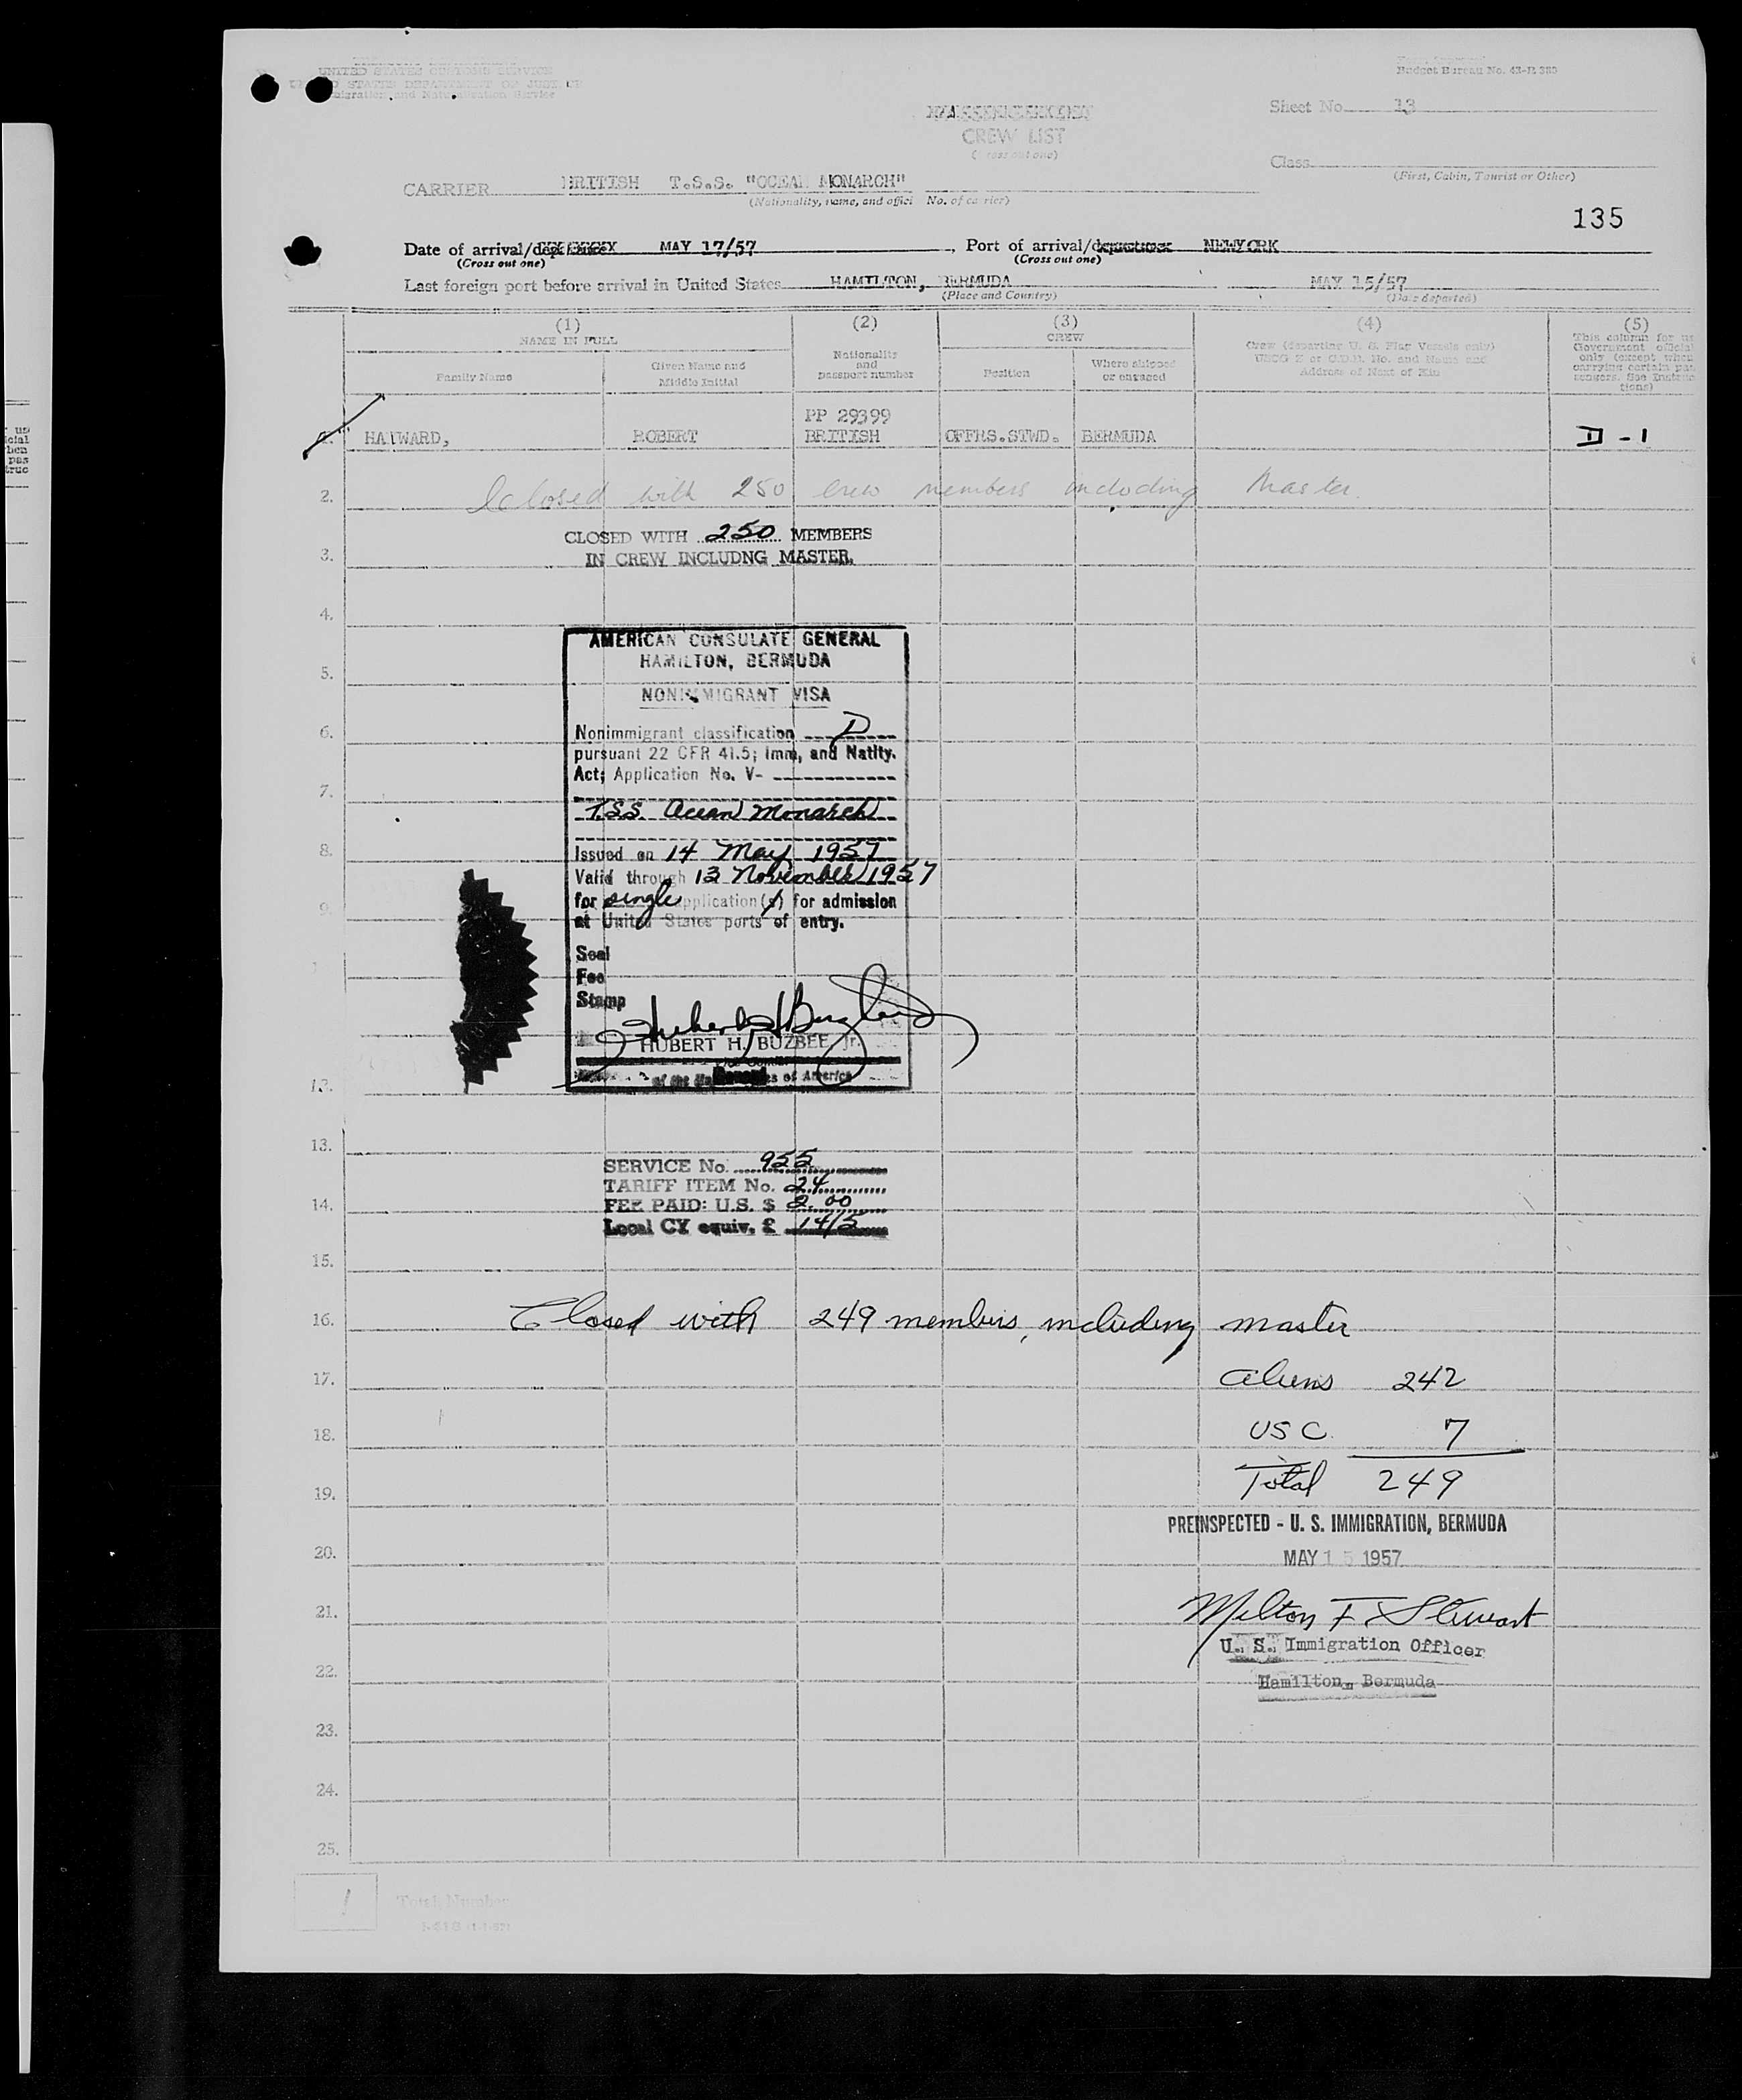 UNITED STATES CUSTOMS SERVICE
STATES DEPARTMENT OF JUSTICE
Immigration and Naturalization Service
Budget Bureau No. 43-R 383
Sheet No. 13
PASSENGER LIST
CREW LIST
(Cross out one)
Class
(First, Cabin, Tourist or Other)
CARRIER BRITISH T.S.S. "OCEAN MONARCH"
(Nationality, name, and official No. of carrier)
135
Date of arrival/departure MAY 17/57, Port of arrival/departure NEWYORK
(Cross out one) (Cross out one)
Last foreign port before arrival in United States HAMILTON, BERMUDA MAY 15/57
(Place and Country) (Date departed)
(1) (2) (3) (4) (5)
NAME IN FULL
CREW
Family Name
Given Name and
Middle Initial
Nationality
and
passport number
Position
Where shipped
or engaged
Crew (departing U. S. Flag Vessels only)
USCG Z or C.D.B. No. and Name and
Address of Next of Kin
This column for use
Government official
only (except when
carrying certain pas
sengers. See Instruc
tions)
PP 29399
1. HAYWARD, ROBERT BRITISH OFFRS.STWD. BERMUDA D-1
2. Closed with 250 crew members including Master.
CLOSED WITH 250 MEMBERS
3. IN CREW INCLUDNG MASTER.
4.
AMERICAN CONSULATE GENERAL
HAMILTON, BERMUDA
5.
NONIMMIGRANT VISA
6. Nonimmigrant classification D
pursuant 22 CFR 41.5; Imm, and Natlty.
Act; Application No. V-
7.
T.S.S. Ocean Monarch
8. Issued on 14 May 1957
Valid through 13 November 1957
for single application(s) for admission
9. at United States ports of entry.
Seal
Fee
Stamp
HUBERT H. BUZBEE, Jr.
of America
12.
13.
SERVICE No. 955
TARIFF ITEM No. 24
14. FEE PAID: U.S. $ 2.00
Local CY equiv. £ 14/5
15.
16. Closed with 249 members, including master
17. Aliens 242
18. USC. 7
19. Total 249
PREINSPECTED - U. S. IMMIGRATION, BERMUDA
20. MAY 15 1957
21. Milton F. Stewart
U. S. Immigration Officer
22. Hamilton, Bermuda
23.
24.
25.
1 Total Number
I-418 (1-1-57)
us
icial
hen
pas
truc